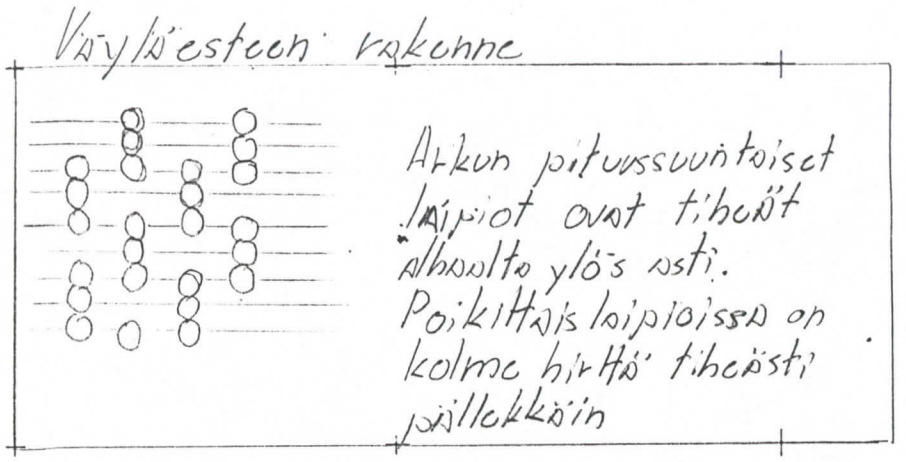 Väyläesteen rakenne
Arkun pituussuuntaiset
laipiot ovat tiheät
alhaalta ylös asti.
Poikittaislaipioissa on
kolme hirttä tiheästi
päällekkäin